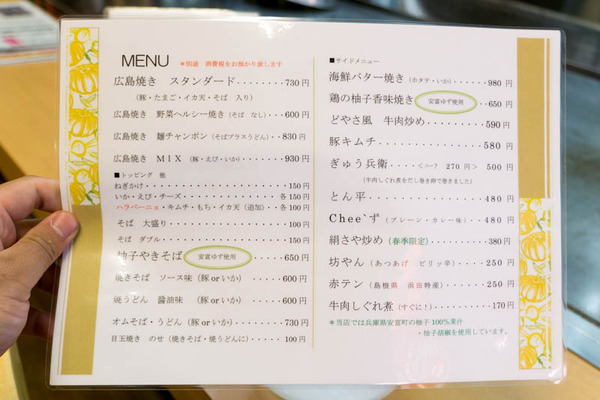 MENU ＊別途 消費税をお預かり致します
広島焼き スタンダード・・・・・・・730円
（豚・たまご・イカ天・そば 入り）
広島焼き 野菜ヘルシー焼き（そば なし）・・・600円
広島焼き 麺チャンポン（そばプラスうどん）・・830円
広島焼き MIX（豚・えび・いか）・・・・・930円
■トッピング 他
ねぎかけ・・・・・・・・・・・・・・・150円
いか・えび・チーズ・・・・・・・・・各150円
ハラペーニョ・キムチ・もち・イカ天（追加）・・各100円
そば 大盛り・・・・・・・・・・・・100円
そば ダブル・・・・・・・・・・・・150円
柚子やきそば 安富ゆず使用・・・・・650円
焼きそば ソース味（豚orいか）・・・・・600円
焼うどん 醤油味 （豚orいか）・・・・・600円
オムそば・うどん（豚orいか）・・・・・730円
目玉焼き のせ（焼きそば・焼うどんに）・・・100円
■サイドメニュー
海鮮バター焼き（ホタテ・いか）・・・・980円
鶏の柚子香味焼き 安富ゆず使用・・650円
どやさ風 牛肉炒め・・・・・・・・590円
豚キムチ・・・・・・・・・・・・580円
ぎゅう兵衛・・・・＜ハーフ 270円＞ 500円
（牛肉しぐれ煮をだし巻き卵で巻きました）
とん平・・・・・・・・・・・・・480円
Chee`ず（プレーン・カレー味）・・・・480円
絹さや炒め（春季限定）・・・・・・380円
坊やん（あつあげ ピリッ辛）・・・・250円
赤テン（島根県 浜田特産）・・・・・250円
牛肉しぐれ煮（すぐに！）・・・・・・170円
＊当店では兵庫県安富町の柚子100％果汁
・柚子胡椒を使用しています。